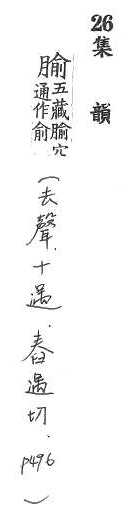 26集　韻
腧五藏腧穴通作俞（去聲．十遇．舂遇切．p496）